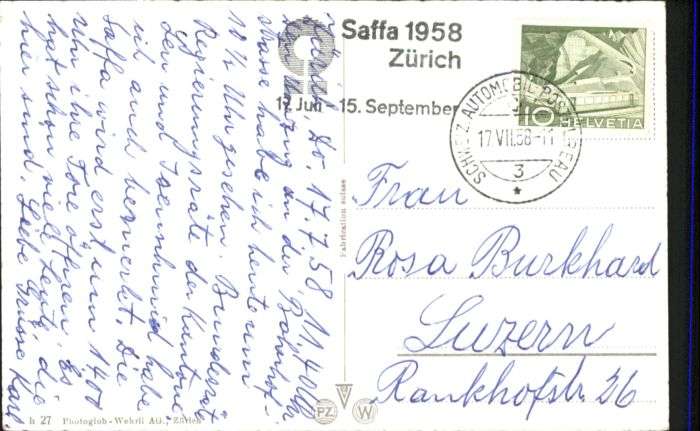 Zürich, Do. 17.7.58, 11.40 Uhr
Den Umzug an der Bahnhof-
strasse habe ich heute um
10½ Uhr gesehen. Bundesrät
Regierungsräte der Kantone
den und habe
ich auch bemerkt. Die
Saffa wird erst um 1400
Uhr ihre Tore öffnen. Es
hat schon viele Leute die
hier sind. Liebe Grüsse Karl
Saffa 1958
Zürich
17. Juli - 15. September
SCHWEIZ. AUTOMOBIL-POSTBUREAU
17.VII.58-11
3
10 HELVETIA
Frau
Rosa Burkhard
Luzern
Rankhofstr. 26
Fabrication suisse
h 27 Photoglob-Wehrli AG., Zürich
PZ W